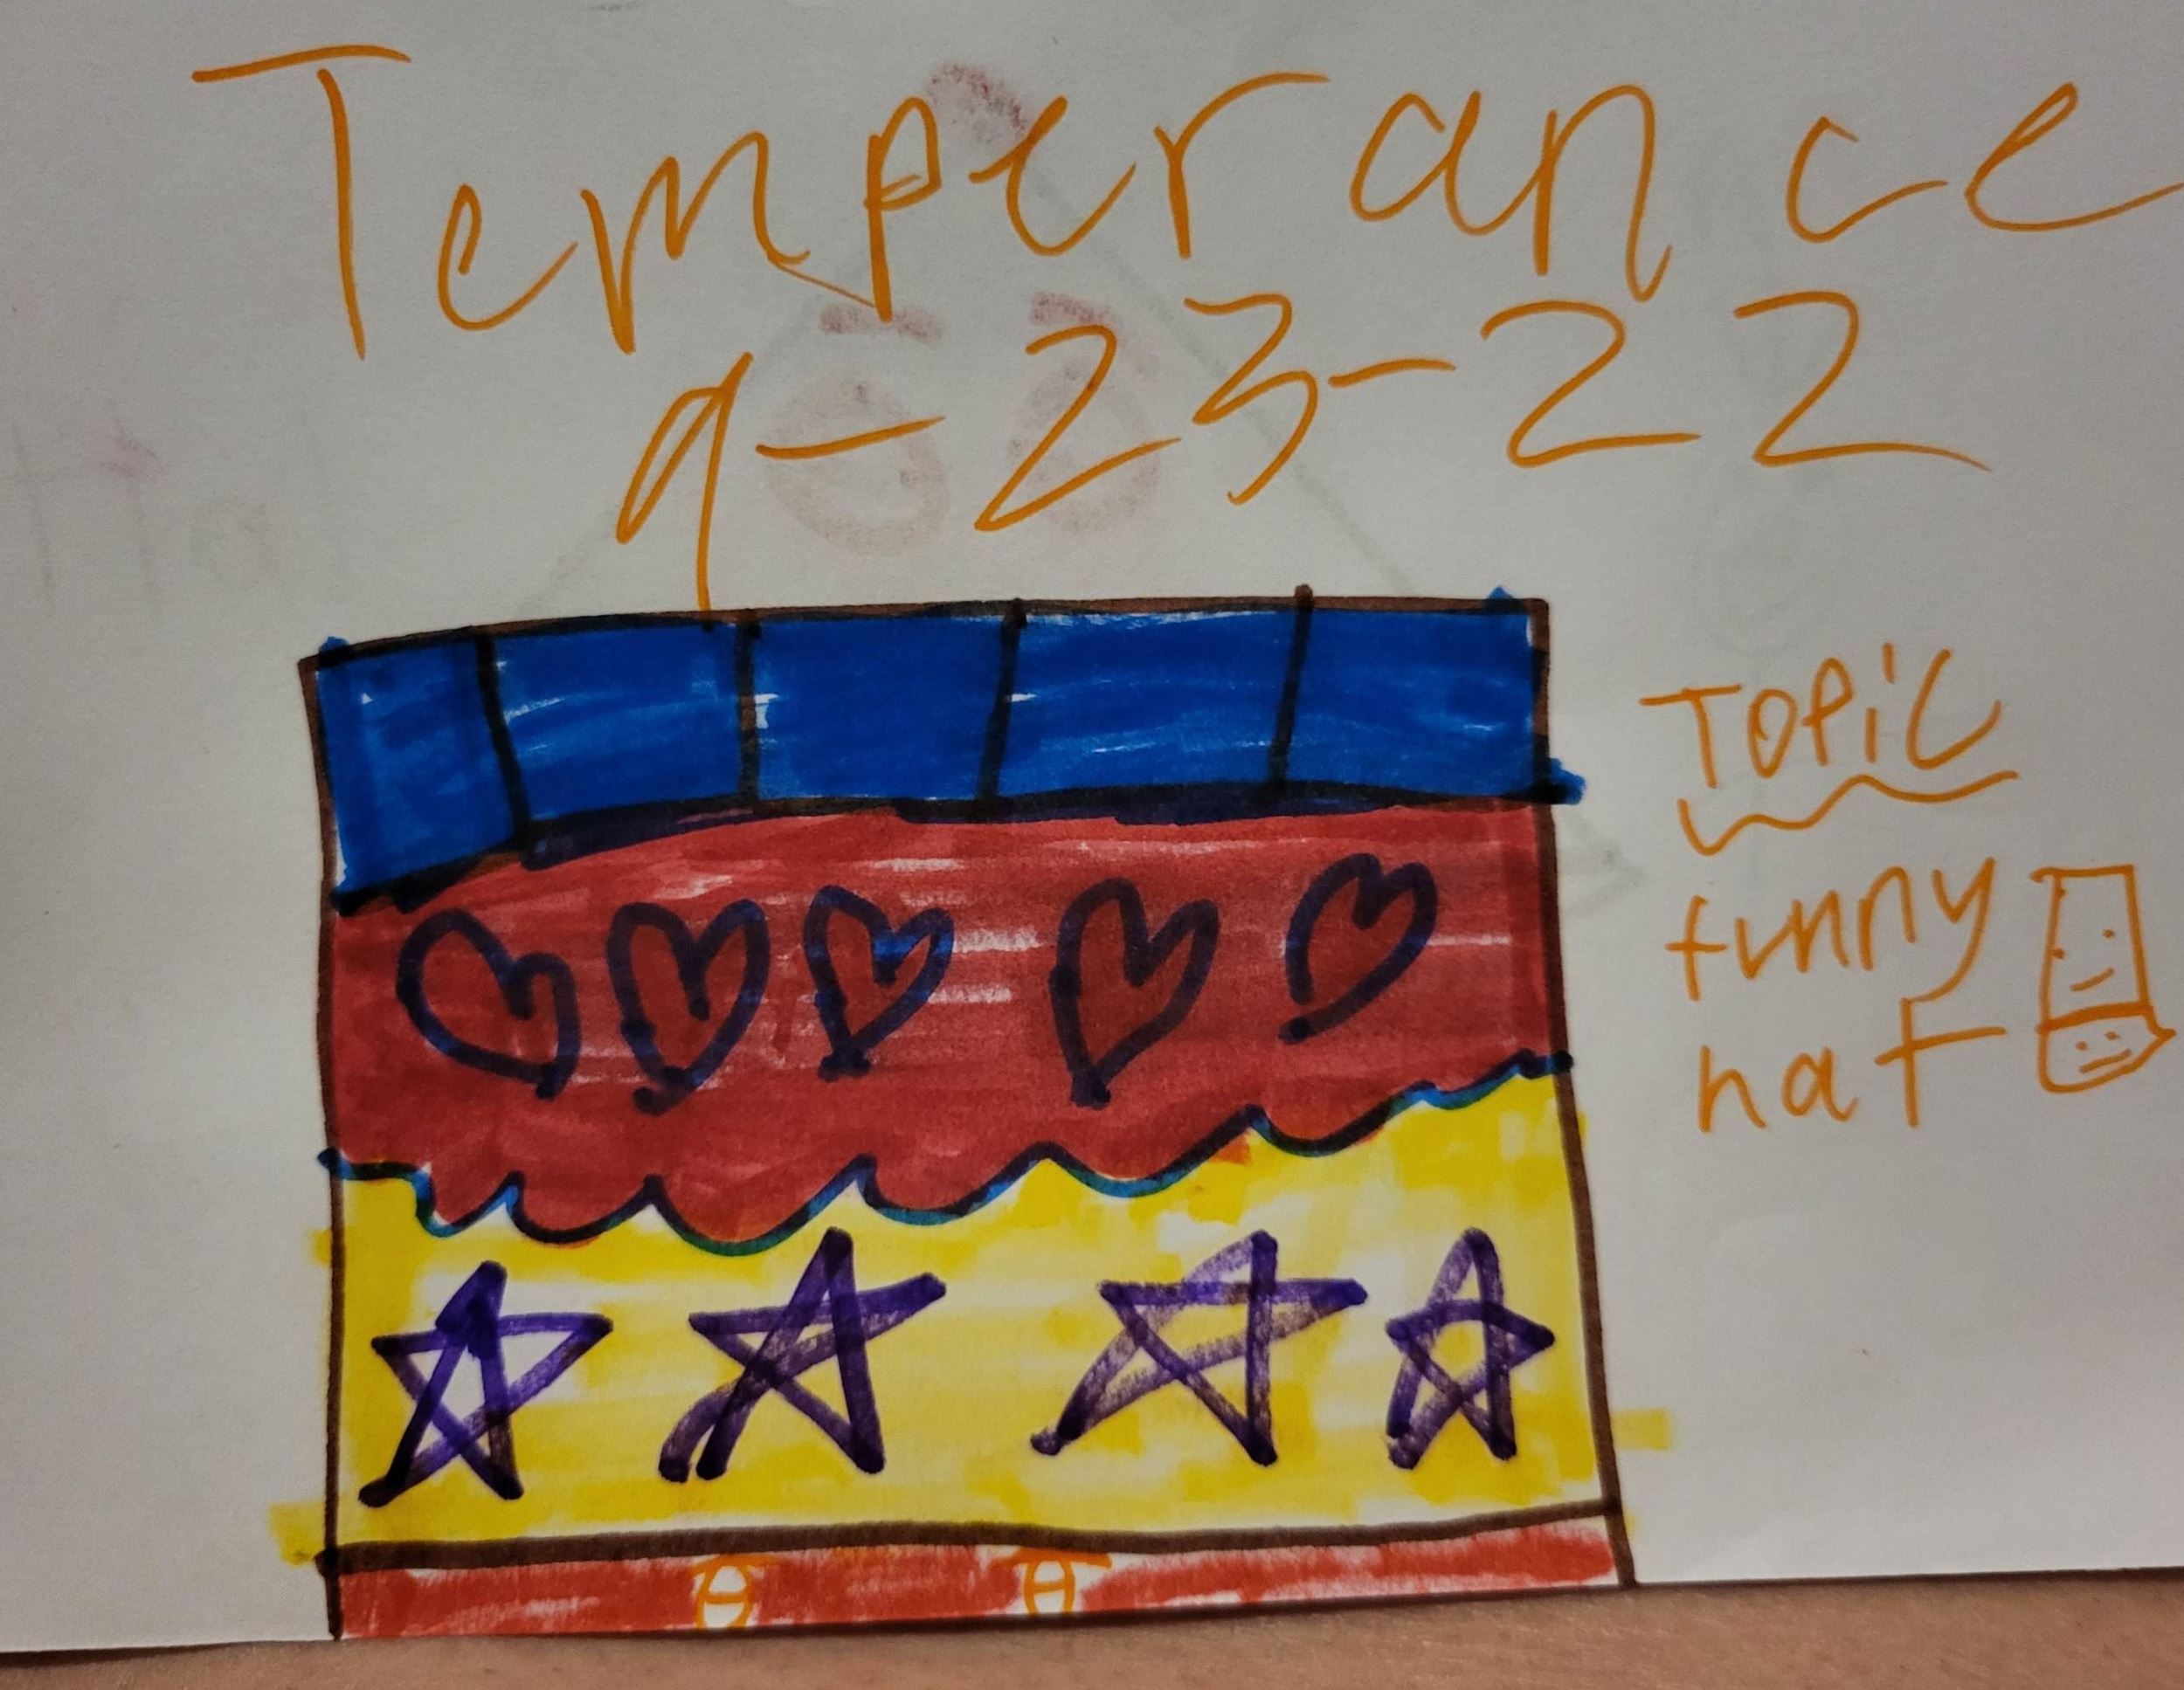 Temperance
9-23-22
TOPiC
funny
hat